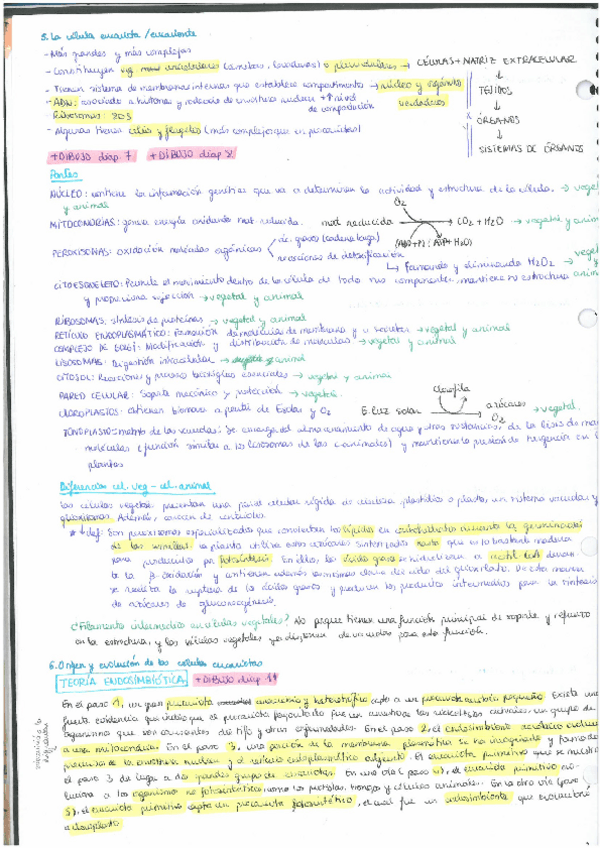 5. La célula eucariota / eucarionte
- Más grandes y más complejas
- Constituyen org. unicelulares (amebas, levaduras) o pluricelulares → CÉLULAS + MATRIZ EXTRACELULAR
↓
TEJIDOS
↓
ÓRGANOS
↓
SISTEMAS DE ÓRGANOS
- Tienen sistema de membranas internas que establece compartimentos → núcleo y orgánulos
- ADN: asociado a histonas y rodeado de envoltura nuclear + ↑ nivel de compactación
- Ribosomas: 80S
- Algunas tienen cilios y flagelos (más complejos que en procariotas)
+ DIBUJO diap. 7 + DIBUJO diap 8
Partes
NÚCLEO: contiene la información genética que va a determinar la actividad y estructura de la célula. → vegetal y animal
MITOCONDRIAS: genera energía oxidando mat. reducida. mat reducida → CO2 + H2O → vegetal y anim
O2
(ADP+Pi) (ATP + H2O)
PEROXISOMAS: Oxidación moléculas orgánicas
ác. grasos (cadena larga)
reacciones de detoxificación
↳ Formando y eliminando H2O2 →
CITOESQUELETO: Permite el movimiento dentro de la célula de todo sus componentes, mantiene su estructura
y proporciona sujección → vegetal y animal
RIBOSOMAS: síntesis de proteínas → vegetal y animal
RETÍCULO ENDOPLASMÁTICO: Formación de moléculas de membrana y → vegetal y animal
COMPLEJO DE GOLGI: Modificación y distribución de moléculas → vegetal y animal
LISOSOMAS: Digestión intracelular → animal
CITOSOL: Reacciones y procesos esenciales → vegetal y animal
PARED CELULAR: Soporte mecánico y protección → vegetal.
CLOROPLASTOS: Obtienen biomasa a partir de Esolar y O2 E. luz solar → azúcares → vegetal.
Clorofila
O2
TONOPLASTO: de las vacuolas: Se encarga del almacenamiento de agua y otras sustancias, de la lisis de ma
moléculas (función similar a los lisosomas de los animales) y mantienen la presión de turgencia en
plantas
Diferencias cel. veg - cel. animal
Las células vegetales presentan una pared celular rígida de celulosa, plastidios o plastos, un sistema vacuolar y
glioxisomas. Además, carecen de centriolos.
* def: Son peroxisomas especializados que convierten los lípidos en carbohidratos durante la germinación
de las semillas. La planta utiliza estos azúcares sintetizados hasta que es lo bastante madura
para producirlos por fotosíntesis. En ellos, los ácidos grasos se hidrolizan a acetil CoA
la β-oxidación y del ciclo del glioxilato. De esta manera
se realiza la ruptura de los ácidos grasos y producen los productos intermedios para la síntesis
de azúcares de gluconeogénesis.
¿Filamentos intermedios en células vegetales? No porque tienen una función principal de soporte y refuerzo
en la estructura, y las células vegetales ya disponen de vacuolas para esta función.
6. Origen y evolución de las células eucariotas
TEORÍA ENDOSIMBIÓTICA + DIBUJO diap 14
En el paso 1, un gran procariota anaerobio y heterótrofo capta a un procariota aerobio pequeño. Existe una
fuerte evidencia que indica que el procariota pequeño fue un un grupo de
organismos que son causantes del tifo y otras enfermedades. En el paso 2, el endosimbionte aeróbico evoluciona
a una mitocondria. En el paso 3, una porción de la membrana plasmática se ha invaginado y
precursora de la envoltura nuclear y el retículo endoplasmático adjunto. El eucariota primitivo que se muestra
el paso 3 da lugar a dos grandes grupos de eucariotas. En una vía (paso 4), el eucariota primitivo
a organismos no fotosintéticos como los protistas, hongos y células animales. En la otra vía (paso
5), el eucariota primitivo capta un procariota fotosintético, el cual fue un endosimbionte que evolucionó
a cloroplasto.